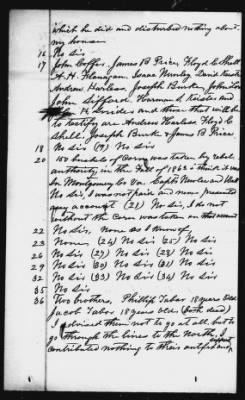 which he did and disturbed nothing about
my house
16 No Sir
17 John Coffer, James B Price, Floyd C Shell
A. H. Flanagan, Isaac Noonley, David
Andrew Harless, Joseph Burk, John
John Sifford, Harmon and
and those that will be
to testify are Andrew Harless Floyd C
Shell, Joseph Burk & James B Price
18 No Sir (19) No Sir
20 150 bushels of Corn was taken by rebel
authority in the Fall of 1863 I think it was
In Montgomery Co Va.
No Sir, I was not paid and never presented
my account (21) No Sir, I do not
without the Corn was taken on this account
22 No Sir, none as I know of,
23 None, (24) No Sir (25) No Sir
26 No Sir (27) No Sir (28) No Sir
29 No Sir (30) No Sir (31) No Sir
32 No Sir (33) No Sir (34) No Sir
35 No Sir
36 Two brothers, Phillip Tabor 18 years old
Jacob Tabor 18 years old (both dead)
I advised them not to go at all, but to
go through the lines to the North, I
contributed nothing to their